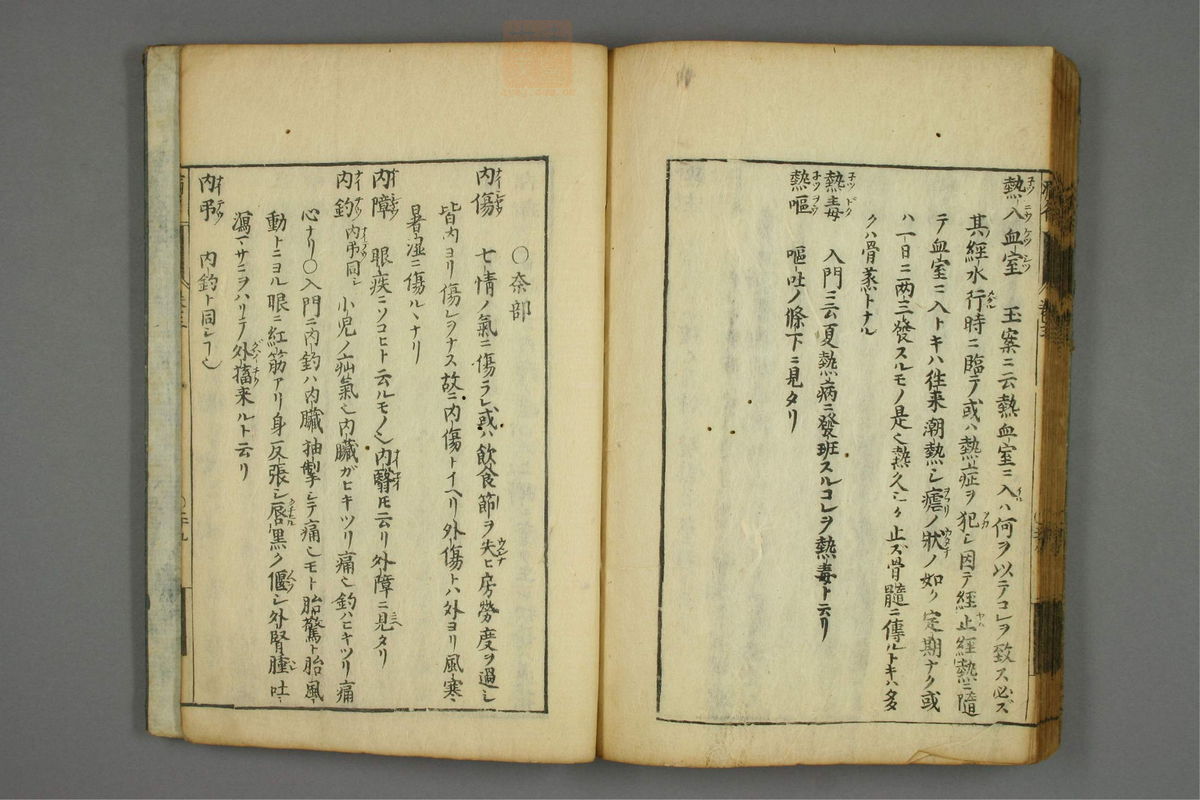 熱入血室　玉案ニ云熱血室ニ入ハ何ヲ以テコレヲ致ス必ズ
其經水行時ニ臨テ或ハ熱症ヲ犯シ因テ經止經熱ニ隨
テ血室ニ入トキハ往来潮熱シ瘧ノ狀ノ如ク定期ナク或
ハ一日ニ两三發スルモノ是也熱久シク止ズ骨髓ニ傳ルトキハ多
クハ骨蒸トナル
熱毒　入門ニ云夏熱病ニ發班スルコレヲ熱毒ト云リ
熱嘔　嘔吐ノ條下ニ見タリ
〇奈部
内傷　七情ノ氣ニ傷ラレ或ハ飲食節ヲ失ヒ房勞度ヲ過シ
皆内ヨリ傷レヲナス故ニ内傷トイヘリ外傷トハ外ヨリ風寒
暑湿ニ傷ルヽナリ
内障　眼疾ニソコヒト云ルモノ也内翳トモ云リ外障ニ見タリ
内釣　内吊同シ　小児ノ疝氣也内臓ガヒキツリ痛也釣ハヒキツリ痛
心ナリ〇入門ニ内釣ハ内臓抽掣シテ痛也モト胎驚ト胎風
動トニヨル眼ニ紅筋アリ身反張シ唇黒ク傴シ外腎腫吐
瀉マサニヲハリテ外搐来ルト云リ
内吊　内釣ト同シ